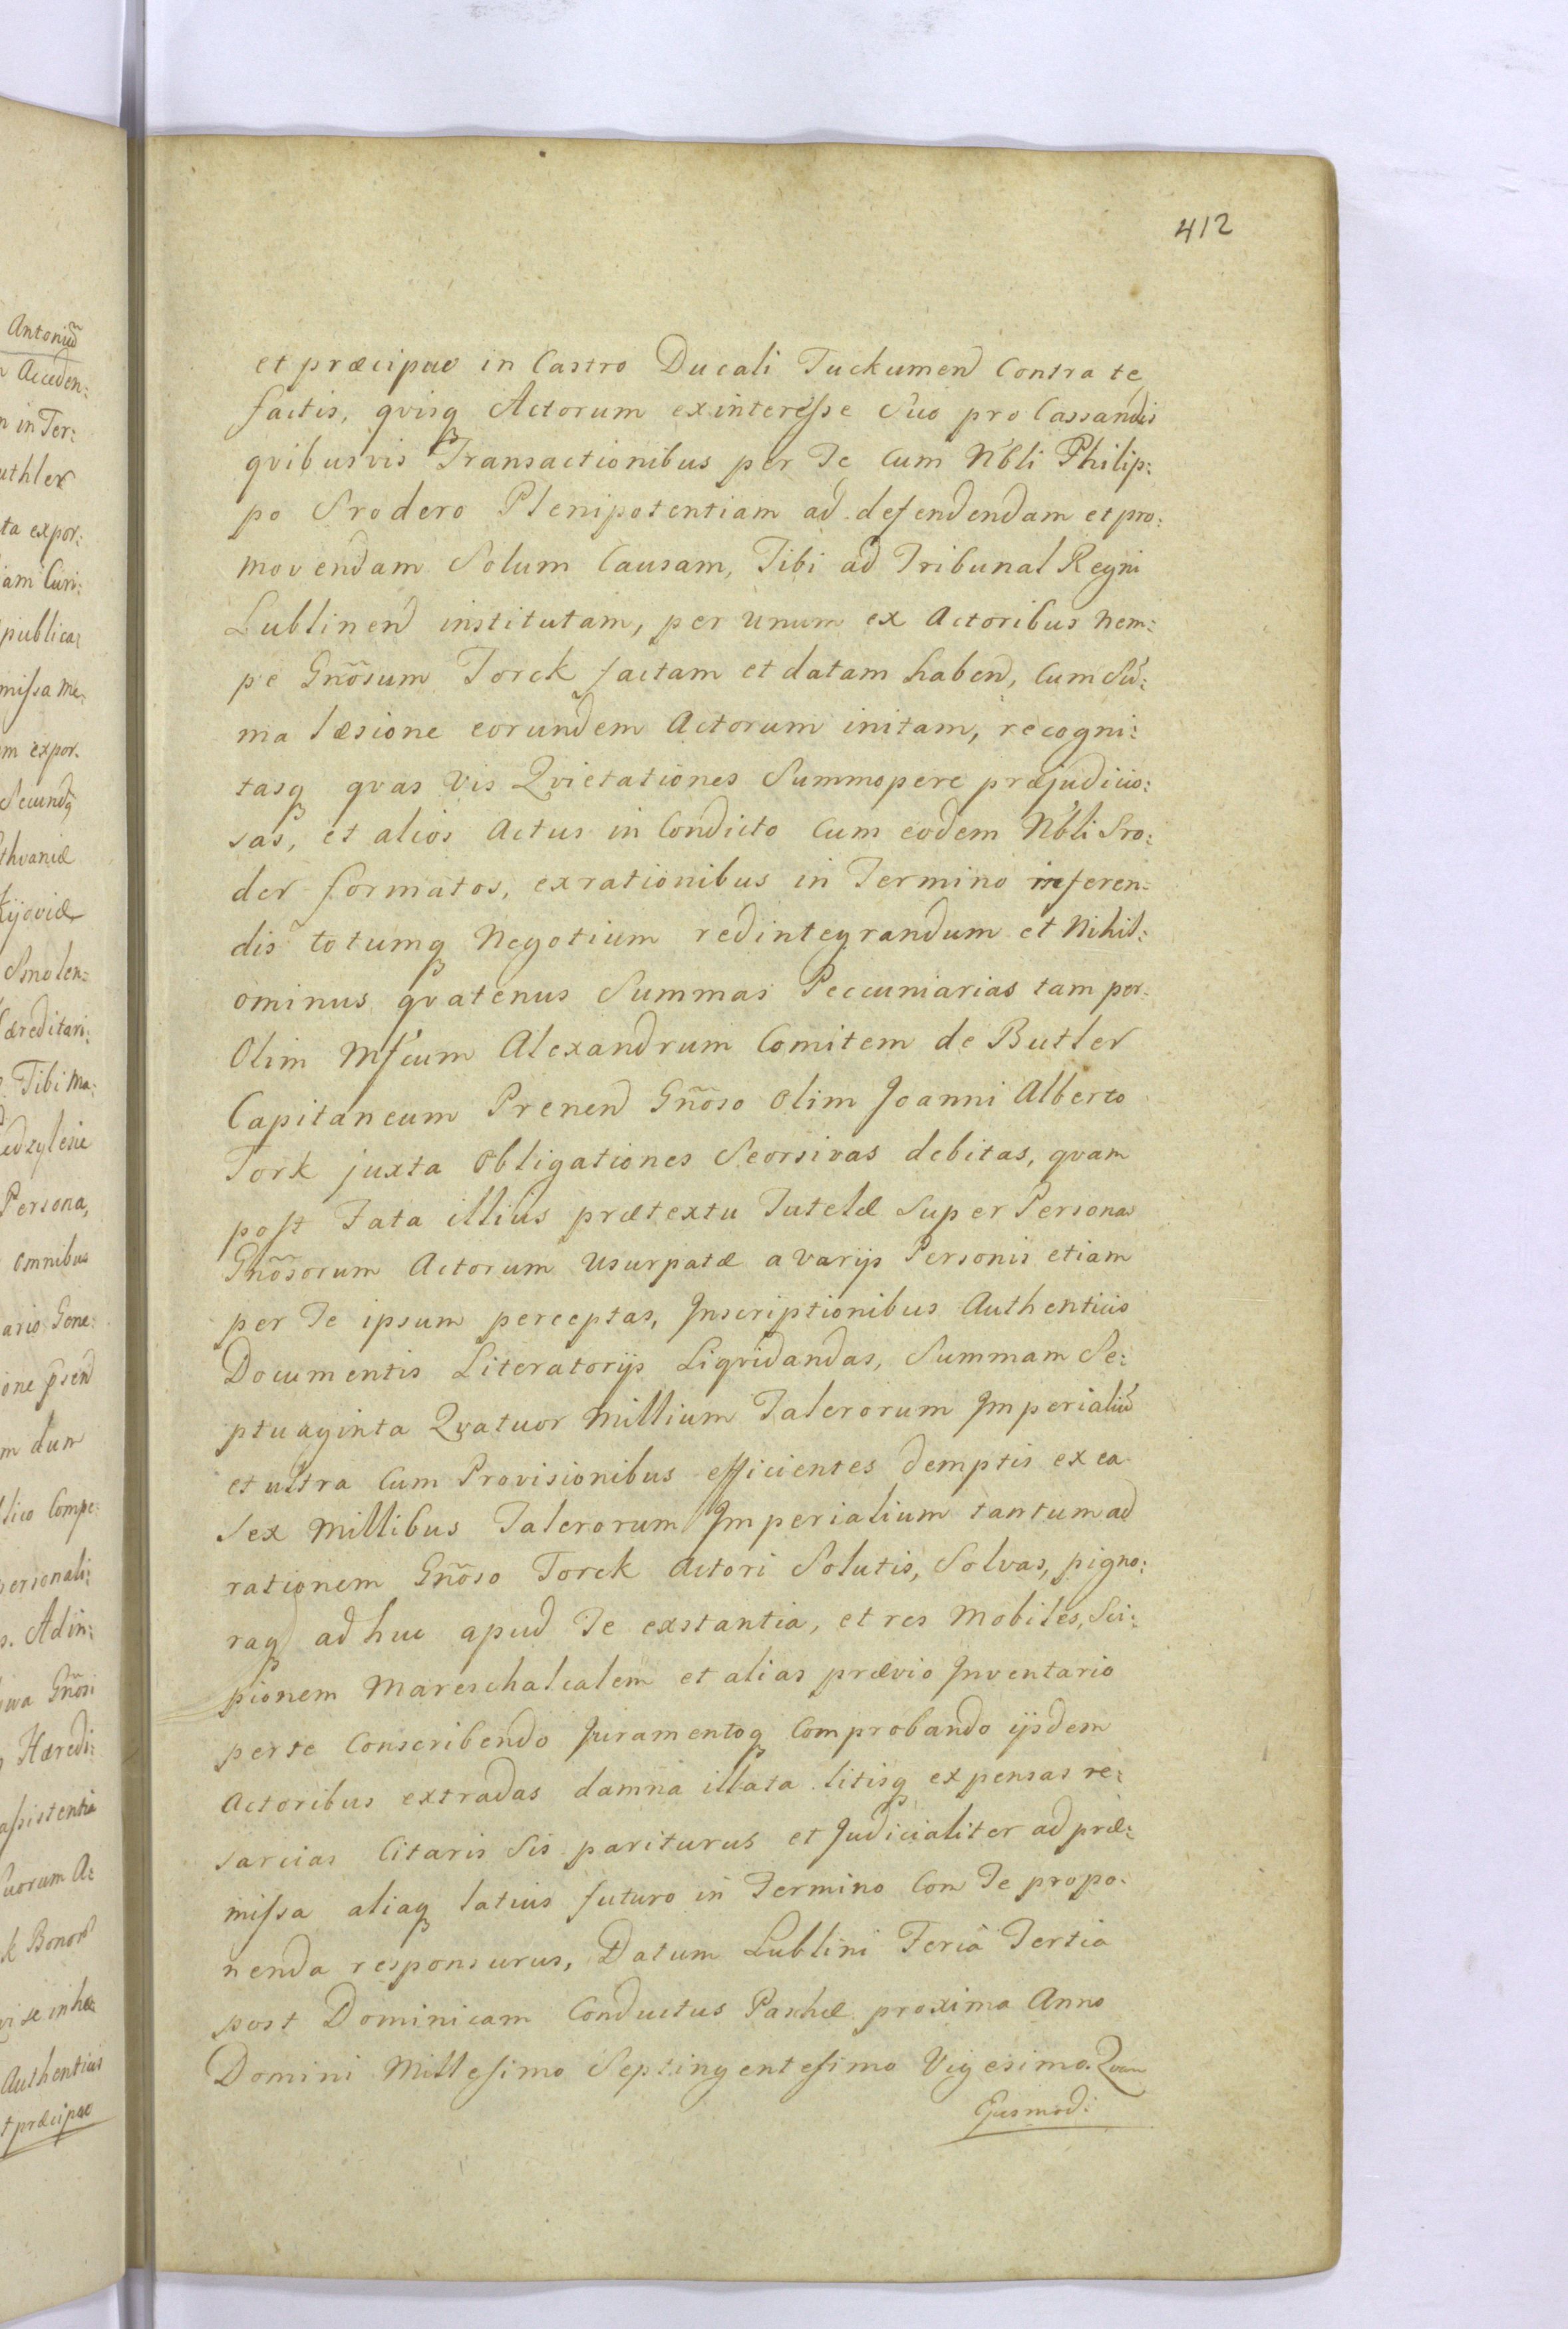 412
et præcipue in Castro Ducali Tuckumen Contra te
factis, qvisq Actorum ex interesse Suo pro Cassandis
qvibusvis Transactionibus per Te Cum Nbli Philip:
po Srodero Plenipotentiam ad defendendam et pro:
movendam Solum Causam, Tibi ad Tribunal Regni
Lublinen institutam, per unum ex Actoribus nem:
pe Gnosum Torck factam et datam haben, Cum Su:
ma læsione eorundem Actorum initam, recogni:
tasq qvas vis Qvietationes Summopere præjudicio:
sas, et alios Actus in Condicto Cum eodem Nbli Sro:
der formatos, ex rationibus in Termino inferen:
dis totumq Negotium redintegrandum et Nihil:
ominus qvatenus Summas Peccuniarias tam per
Olim Mfcum Alexandrum Comitem de Butler
Capitaneum Prenen Gnoso Olim Joanni Alberto
Tork juxta Obligationes Seorsivas debitas, qvam
post Fata illius prætextu Tutelæ Super Personas
Gnosorum Actorum Usurpatæ a varijs Personis etiam
per Te ipsum perceptas, Inscriptionibus Authenticis
Documentis Literatorijs Liqvidandas, Summam Se:
ptuaginta Qvatuor Millium Talerorum Imperialiu
et ultra Cum Provisionibus efficientes demptis ex ea
Sex Millibus Talerorum Imperialium tantum ad
rationem Gnoso Torck Actori Solutis, Solvas, pigno:
raq ad huc apud Te exstantia, et res Mobiles, Sci:
pionem Mareschalcalem et alias prævio Inventario
per te Conscribendo Juramentoq Comprobando ijsdem
Actoribus extradas damna illata litisq expensas re:
sarcias Citaris Sis pariturus et Judicialiter ad præ:
missa aliaq latius futuro in Termino Con Te propo:
nenda responsurus, Datum Lublini Feria Tertia
post Dominicam Conductus Paschæ proxima Anno
Domini Millesimo Septingentesimo Vigesimo. Qvam
Ejusmodi